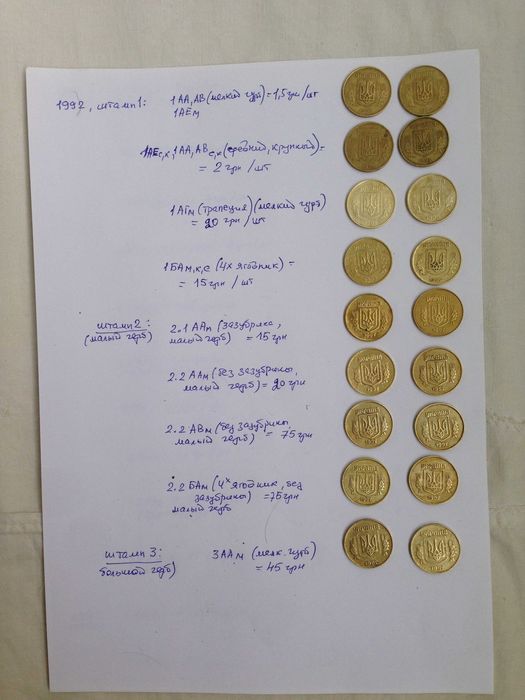 1992, штамп 1:
1АА, АВ (мелкий гурт) = 1,5 грн/шт
1АЕм
1АЕс,к, 1АА, АВс,к (средний, крупный) =
= 2 грн/шт
1АГм (трапеция) (мелкий гурт)
= 20 грн/шт
1БАм,к,с (4х ягодник) =
= 15 грн/шт
штамп 2:
(малый герб)
2.1 ААм (зазубрина,
малый герб) = 15 грн
2.2 ААм (без зазубрины,
малый герб) = 20 грн
2.2 АВм (без зазубрины,
малый герб) = 75 грн
2.2 БАм (4х ягодник, без
зазубрины) = 75 грн
малый герб
штамп 3:
большой герб)
3ААм (мелк. гурт)
= 45 грн